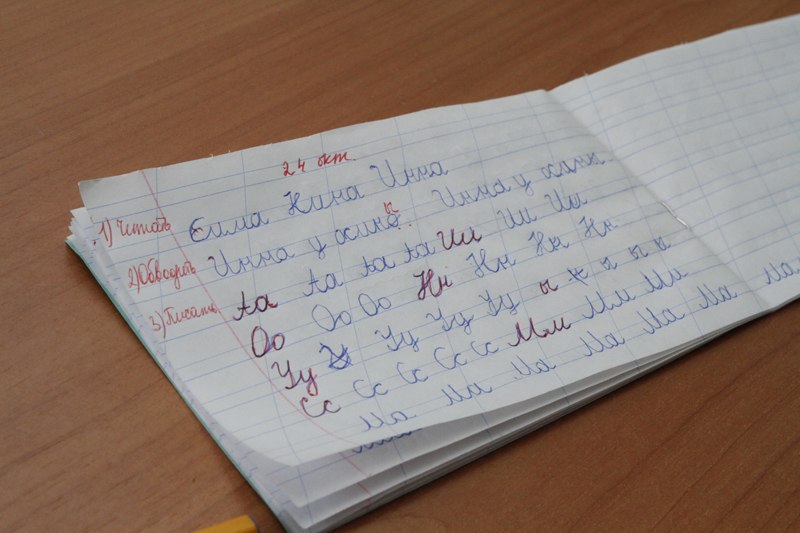 24 окт.
1) Читать Сима Нина Инна
2) Обводить Инна у осины. Инна у осины
3) Писать Аа Аа Аа Аа Ии Ии Ии
Оо Оо Оо Нн Нн Нн Нн
Уу Уу Уу Уу ы ы ы ы
Сс Сс Сс Сс Сс Мм Мм Мм
Ма Ма Ма Ма Ма Ма Ма